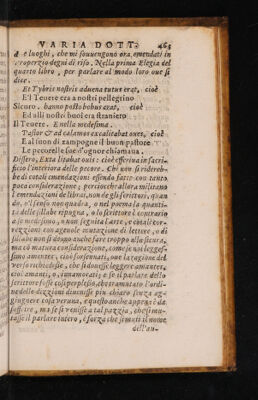 VARIA DOTT. 463
e luoghi, che mi souuengono ora, emendati in
Properzio degni di riso. Nella prima Elegia del
quarto libro, per parlare al modo loro oue si
dice.
Et Tybris nostris aduena tutus erat, cioè
E'l Teuere era a nostri pellegrino
Sicuro. hanno posto bobus erat, cioè
Ed alli nostri buoi era straniero
Il Teuere. E nella medesima.
Pastor & ad calamos exta litabat ouis, cioè
E al suon di zampogne il buon pastore
Le pecorelle sue d'ognor chiamaua.
Dissero, Exta litabat ouis: cioè offeriua in sacri-
ficio l'interiora delle pecore. Chi non si ridereb-
be di cotali emendazioni essendo fatte con tanta
poca considerazione; percioche allora militano
l'emendazioni de libri, non de gli scrittori, quan
do, o'l senso non quadra, o nel poema la quanti-
tà delle sillabe ripugna, o lo scrittore è contrario
a se medesimo, o non seguita l'arte, e cotali cor-
rezzioni con ageuole mutazione di lettere, o di
sillabe non si deono anche fare troppo alla sicura,
ma cō matura considerazione, come se noi leggessi-
mo amentes, cioè forsennati, oue la ragione del
verso richiedesse, che si douesse leggere amantes,
cioè amanti, o, innamorati; e se il parlare dello
scrittore fosse così perplesso, che tramutato l'ordi-
ne delle dizzioni diuenisse più chiaro senza ag-
giungere cosa veruna, e questo anche appena da
soffrire, ma se si venisse a tal pazzia, che si mu-
tasse il parlare intero, è forza che si muti il nome
dell'au-